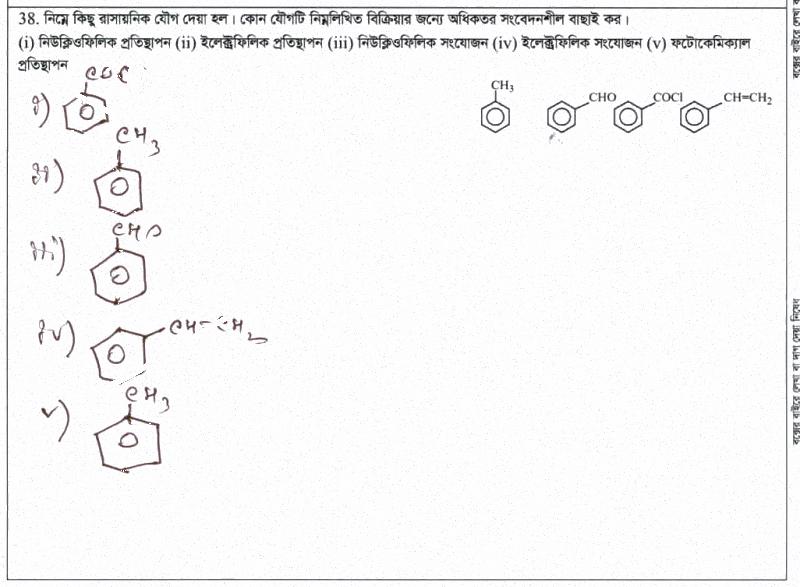 38. নিম্নে কিছু রাসায়নিক যৌগ দেয়া হল। কোন যৌগটি নিম্নলিখিত বিক্রিয়ার জন্যে অধিকতর সংবেদনশীল বাছাই কর।
(i) নিউক্লিওফিলিক প্রতিস্থাপন (ii) ইলেক্ট্রফিলিক প্রতিস্থাপন (iii) নিউক্লিওফিলিক সংযোজন (iv) ইলেক্ট্রফিলিক সংযোজন (v) ফটোকেমিক্যাল
প্রতিস্থাপন
CH₃ CHO COCl CH=CH₂
i) COC
ii) CH₃
iii) CHO
iv) CH=CH₂
v) CH₃
বক্সের বাইরে লেখা বা দাগ দেয়া নিষেধ